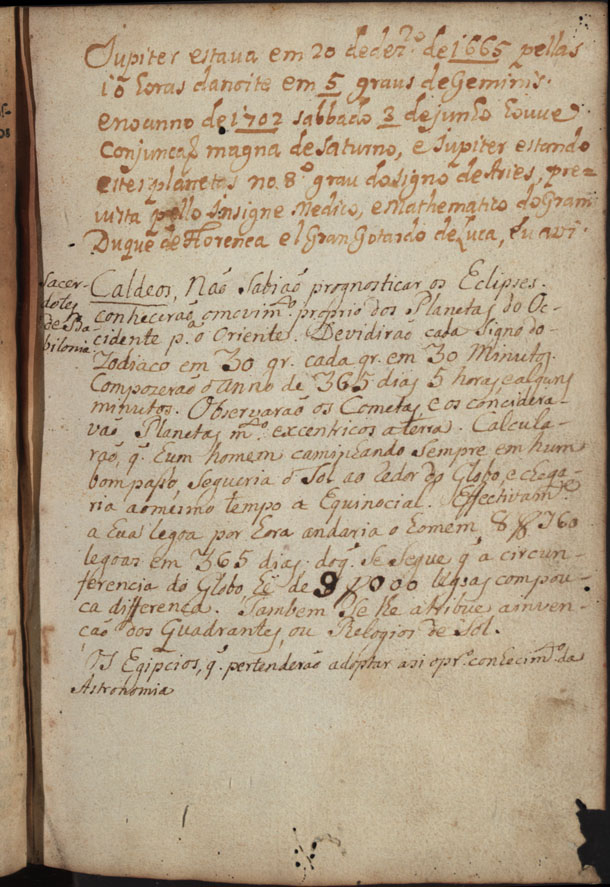 Jupiter estava em 20 dedez.ro de 1665 pellas
10 horas danoite em 5 graus de Geminis.
enoanno de 1702 sabbado 3 de junho houve
Conjuncaõ magna de Saturno, e Jupiter estando
estes planetas no 8.º grau do signo de Aries, pre-
vista pello Insigne Medico, e Mathematico do Gram
Duque de Florença el Gran Gotardo de Luca,
Sacer-
dotes
de Ba
bilonia
Caldeos, Naõ Sabiaõ prognosticar os Eclipses.
conheceraõ omovim.to proprio dos Planetas do Oc-
cidente p.a o Oriente. Devidiraõ cada Signo do
Zodiaco em 30 gr. cada gr. em 30 Minutos.
Compozeraõ o anno de 365 dias 5 horas e alguns
minutos. Observaraõ os Cometas, e os concidera-
vaõ Planetas m.to excentricos a terra. Calcula-
raõ, q. hum homem caminhando sempre em hum
bom passo, segueria o Sol ao redor do Globo, e chega-
ria aomesmo tempo a Equinocial. Effectivam.e
a hua legoa por hora andaria o homem 8760
legoas em 365 dias, doq. Se Segue q. a circun-
ferencia do Globo he de 9000 legoas compou-
ca differença. Tambem Se lhe atribue ainven-
caõ dos Quadrantes, ou Relogios de Sol.
Egipcios, q. pertenderaõ adoptar asi opr.o conhecim.to da
Astronomia